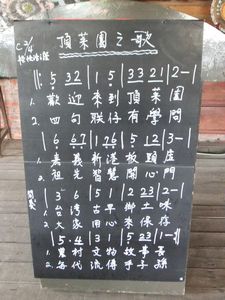 頂菜園之歌
C 2/4
‖: 5 32 | 1 5 | 33 21 | 2 — |
1. 歡迎 來到 頂菜園
2. 四句 聯仔 有學問
| 6 67 | 126 | 5 12 | 3 — |
1. 嘉義 新港 板頭厝
2. 祖先 智慧 開心門
| 3 6 | 5 2 | 2 23 | 2 — |
1. 台灣 古早 鄉土味
2. 大家 用心 來保存
| 5 · 4 | 3 1 | 5 23 | 1 — :‖
1. 農村 文物 故事
2. 每代 流傳